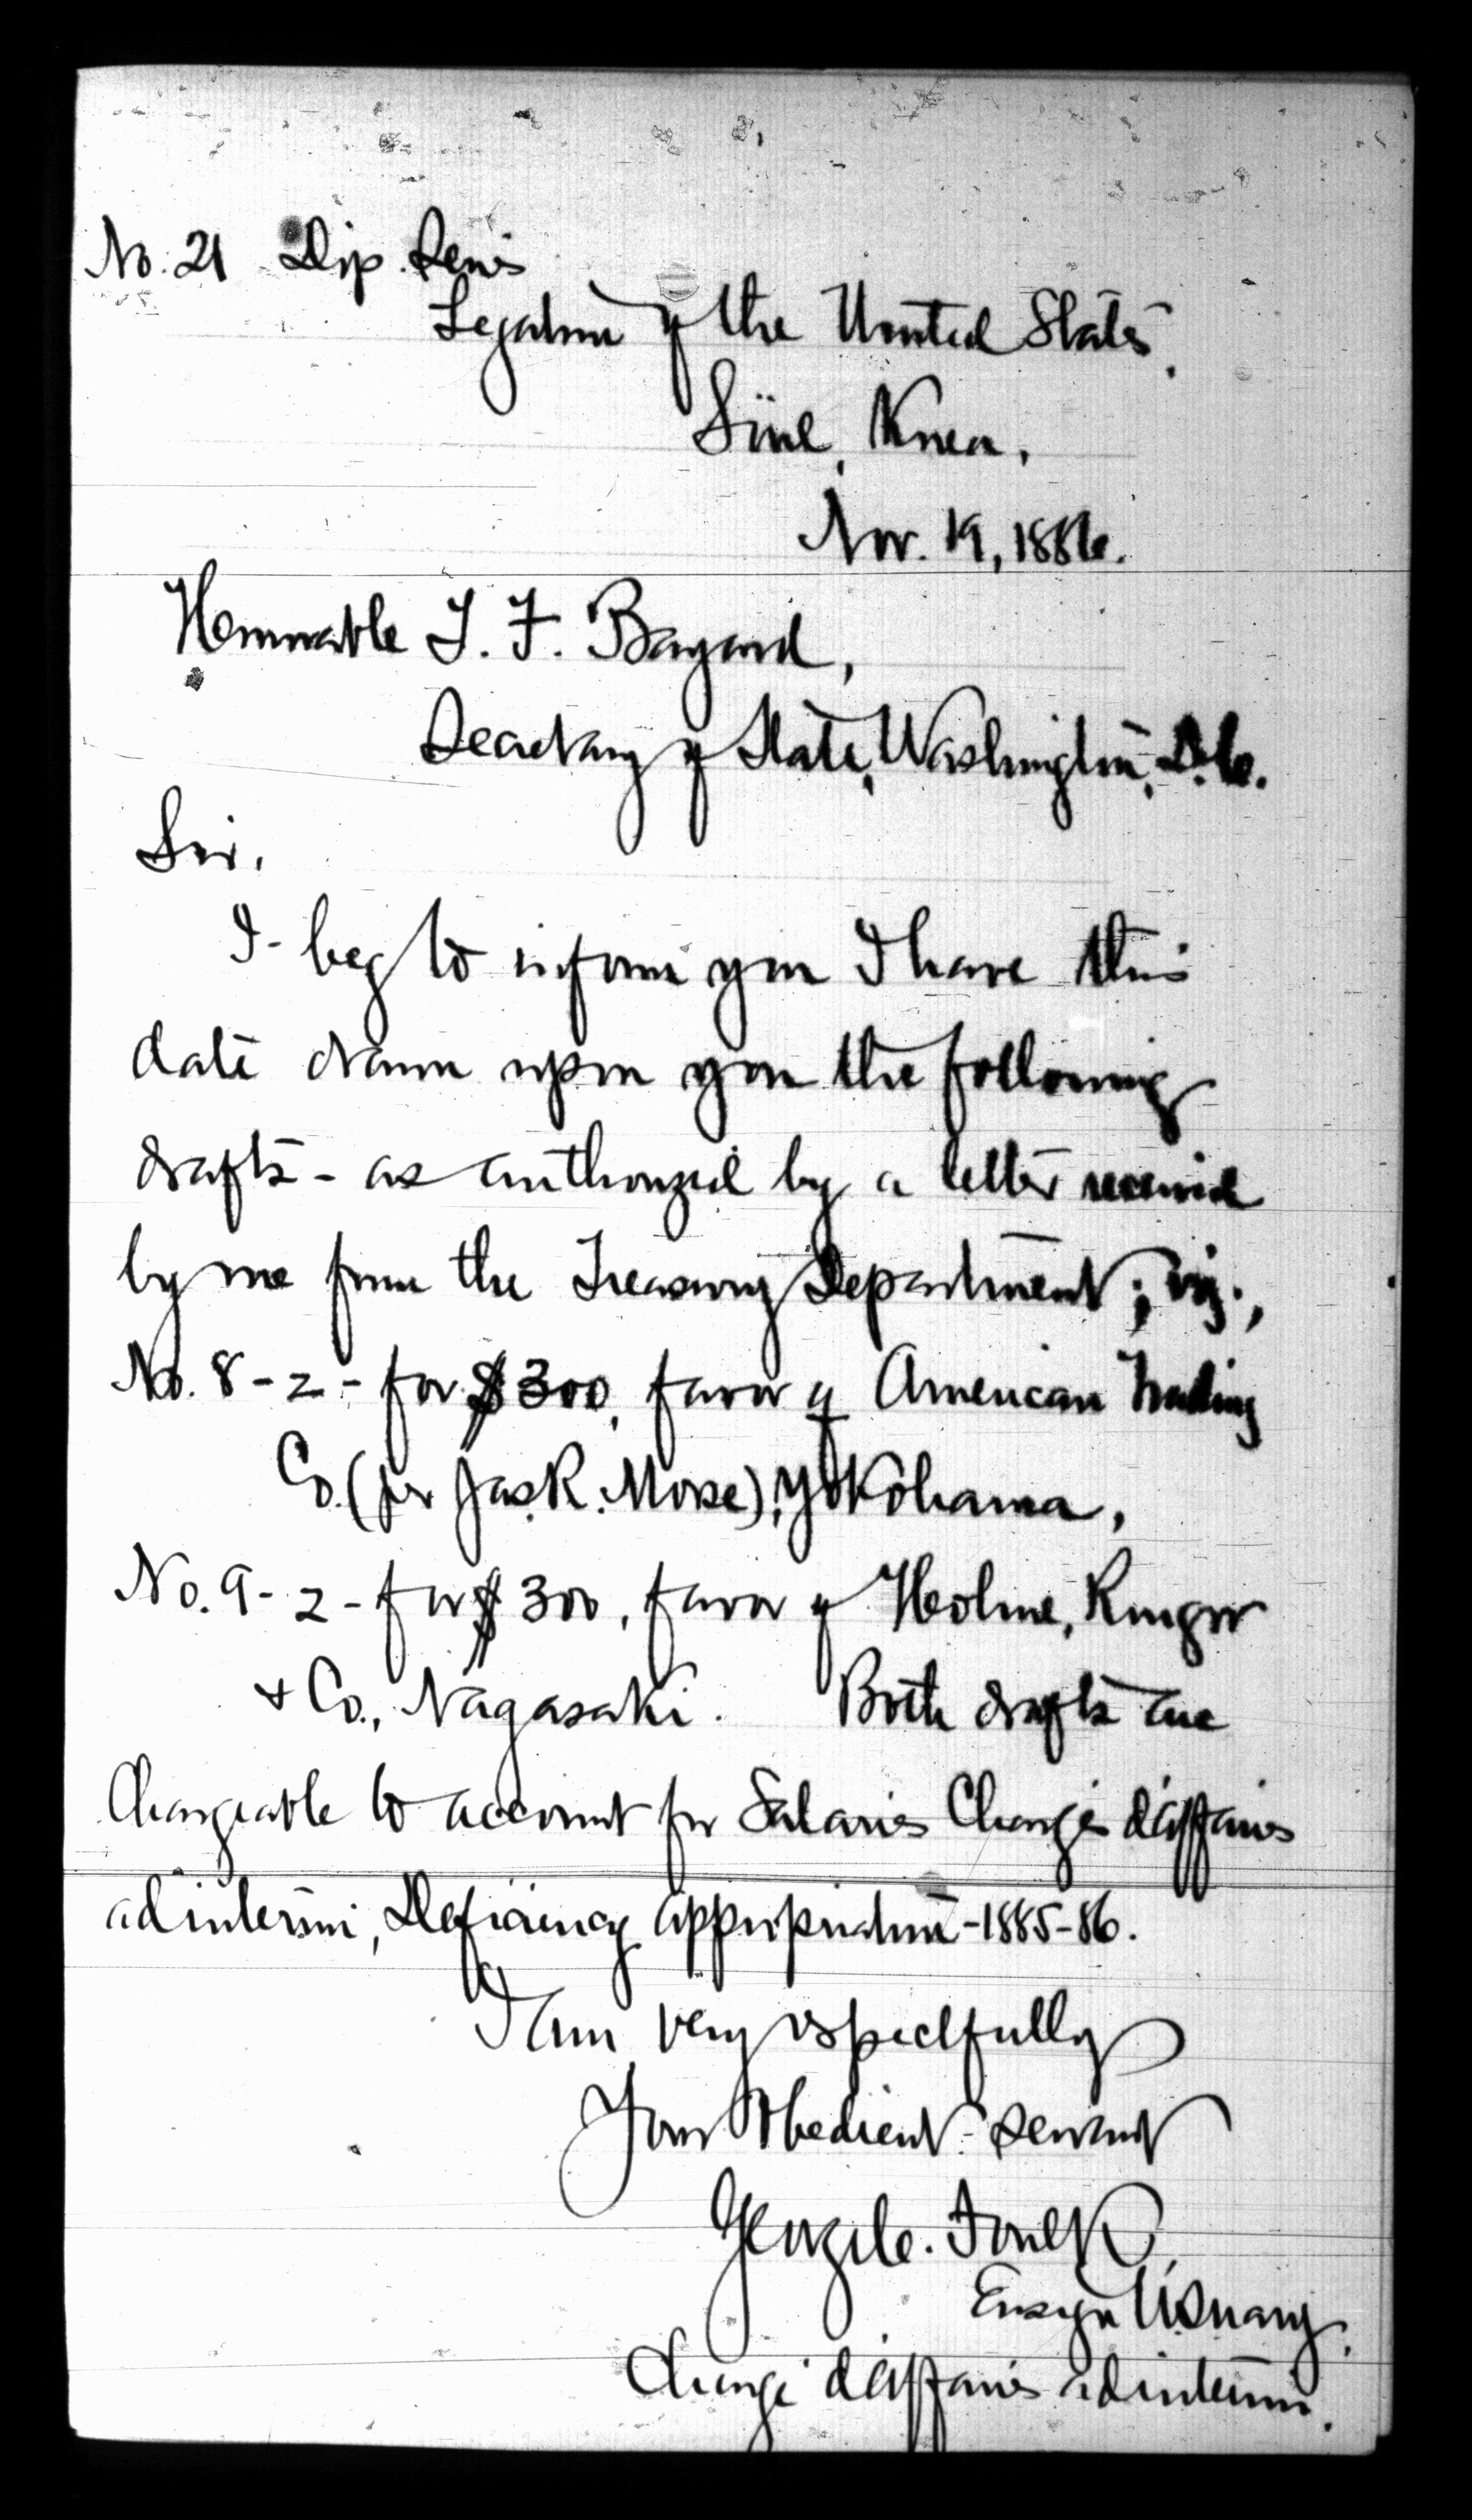 No. 21 Dip. Series
Legation of the United States,
Söul, Korea,
Nov. 19, 1886.
Honorable T. F. Bayard,
Secretary of State, Washington, D.C.
Sir,
I beg to inform you I have this
date drawn upon you the following
drafts - as authorized by a letter received
by me from the Treasury Department; viz.,
No. 8-2- for $300, favor of American Trading
Co. (per Jas. R. Morse), Yokohama,
No. 9-2- for $300, favor of Holme, Ringer
& Co., Nagasaki. Both drafts are
Chargeable to account for Salaries Chargés d'affaires
ad interim, Deficiency appropriation - 1885-86.
I am very respectfully
Your obedient servant
George C. Foulk
Ensign U.S. navy.
Chargé d'Affaires ad interim.